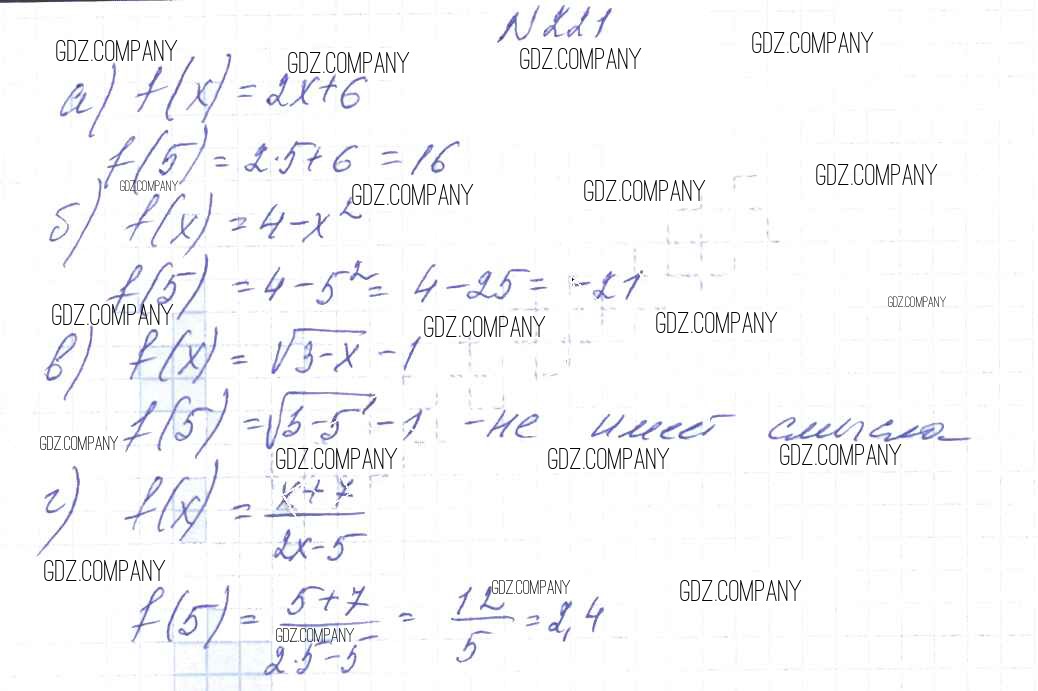 N 221
GDZ.COMPANY GDZ.COMPANY GDZ.COMPANY GDZ.COMPANY
а) f(x) = 2x+6
f(5) = 2·5+6 = 16
GDZ.COMPANY GDZ.COMPANY GDZ.COMPANY GDZ.COMPANY
б) f(x) = 4-x²
f(5) = 4-5² = 4-25 = -21
GDZ.COMPANY GDZ.COMPANY GDZ.COMPANY GDZ.COMPANY
в) f(x) = √3-x - 1
f(5) = √3-5 - 1 - не имеет смысла
GDZ.COMPANY GDZ.COMPANY GDZ.COMPANY GDZ.COMPANY
г) f(x) = x+7 / 2x-5
GDZ.COMPANY GDZ.COMPANY GDZ.COMPANY
f(5) = 5+7 / 2·5-5 = 12 / 5 = 2,4
GDZ.COMPANY